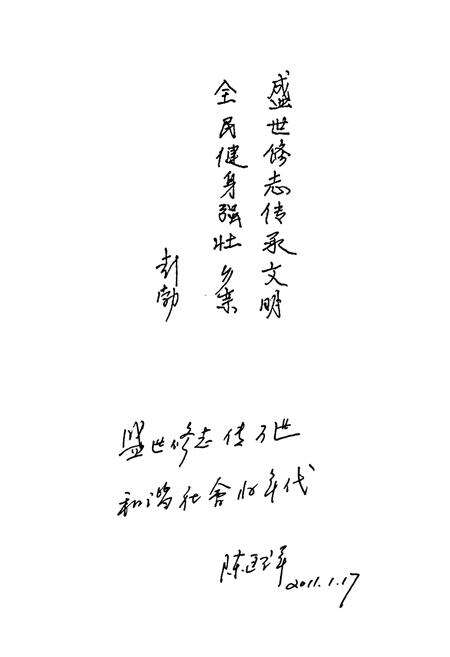 盛世修志传承文明
全民健身强壮乡亲
彭勃
盛世修志传万世
和谐社会好年代
2011.1.17